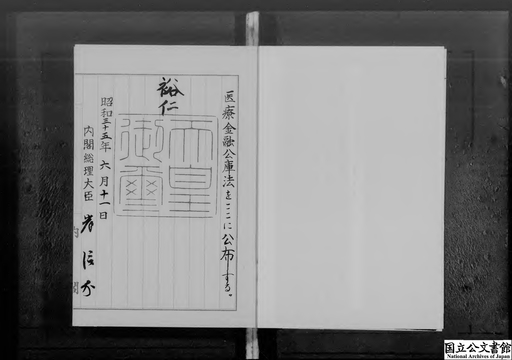 医療金融公庫法をここに公布する。
裕仁
天皇御璽
昭和三十五年六月十一日
内閣総理大臣 岸信介
内閣
国立公文書館
National Archives of Japan